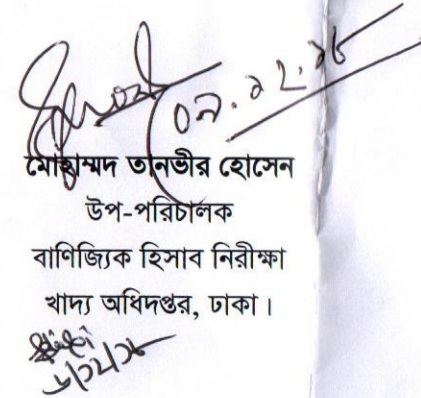 ০৯.১২.১৮
মোহাম্মদ তানভীর হোসেন
উপ-পরিচালক
বাণিজ্যিক হিসাব নিরীক্ষা
খাদ্য অধিদপ্তর, ঢাকা।